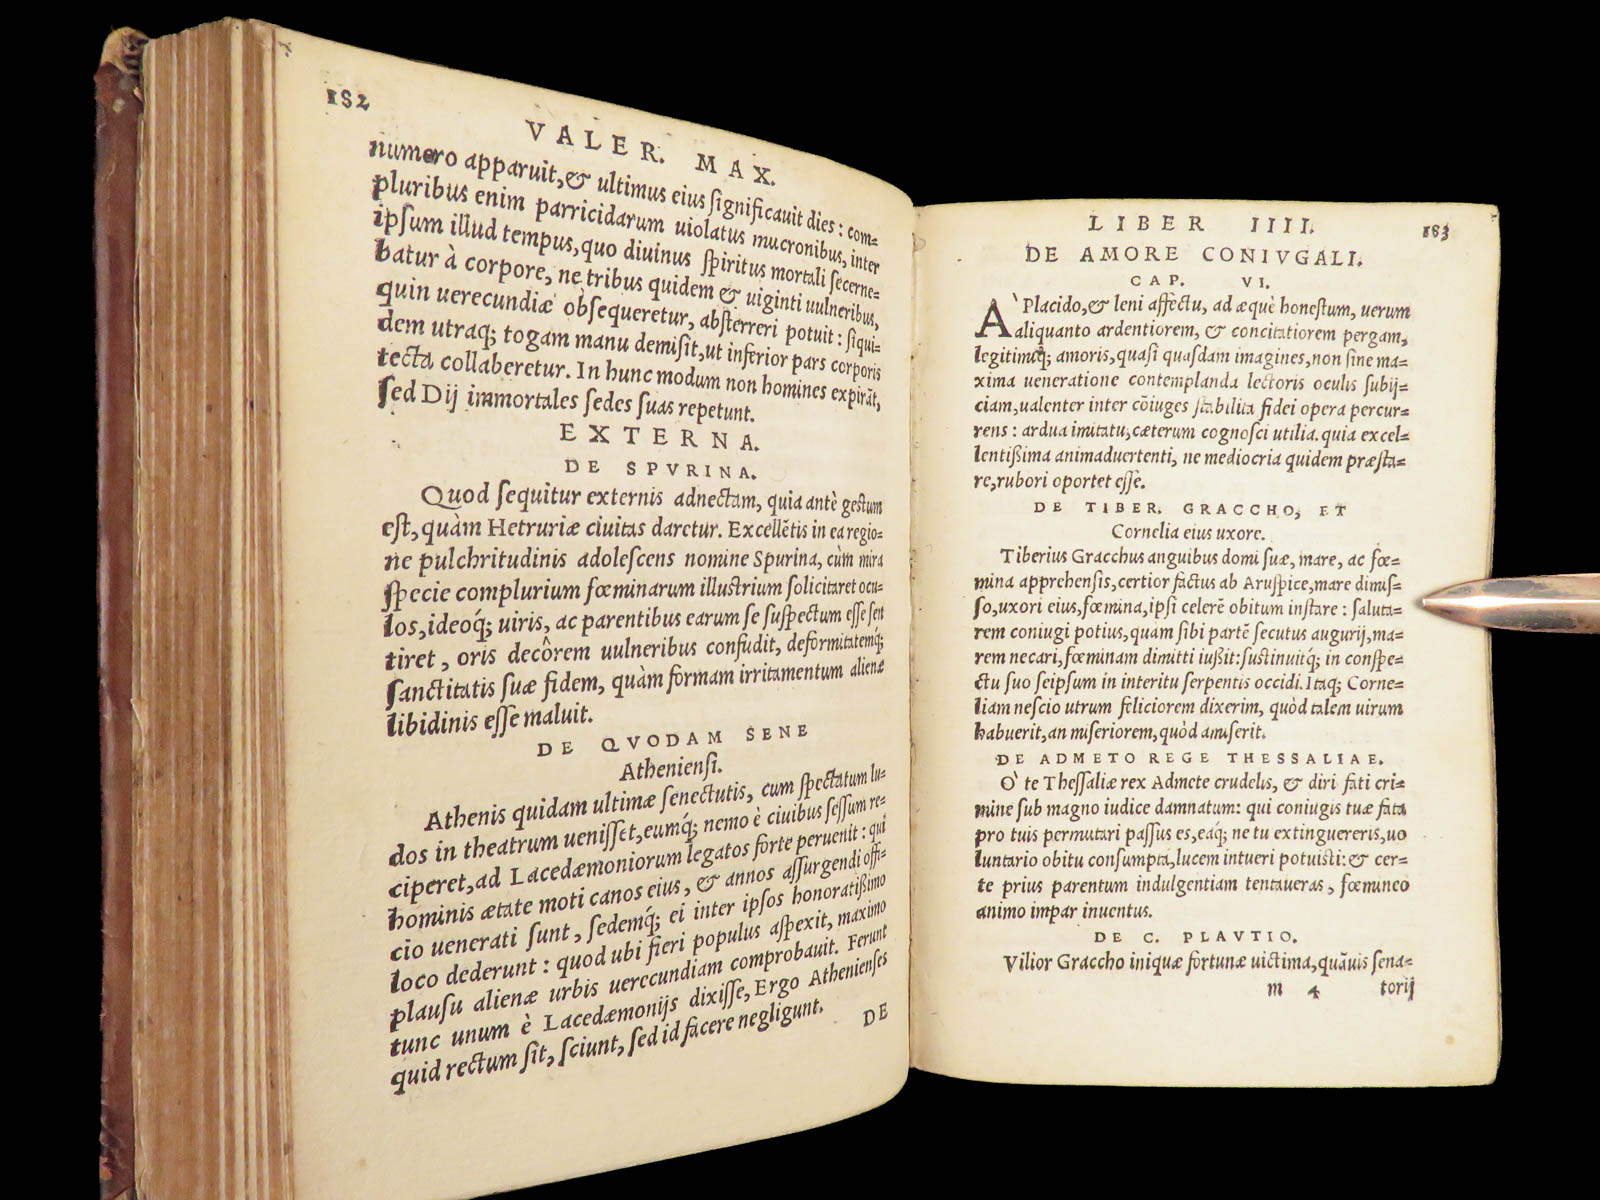 182
VALER. MAX.
numero apparuit, & ultimus eius significauit dies: com=
pluribus enim parricidarum uiolatus mucronibus, inter
ipsum illud tempus, quo diuinus spiritus mortali secerne=
batur à corpore, ne tribus quidem & uiginti uulneribus,
quin uerecundiæ obsequeretur, absterreri potuit: siqui=
dem utraq; togam manu demisit, ut inferior pars corporis
tecta collaberetur. In hunc modum non homines expirãt,
sed Dij immortales sedes suas repetunt.
EXTERNA.
DE SPVRINA.
Quod sequitur externis adnectam, quia antè gestum
est, quàm Hetruriæ ciuitas daretur. Excellẽtis in ea regio=
ne pulchritudinis adolescens nomine Spurina, cùm mira
specie complurium fœminarum illustrium solicitaret ocu=
los, ideoq́; uiris, ac parentibus earum se suspectum esse sen
tiret, oris decôrem uulneribus confudit, deformitatemq́;
sanctitatis suæ fidem, quàm formam irritamentum alienæ
libidinis esse maluit.
DE QVODAM SENE
Atheniensi.
Athenis quidam ultimæ senectutis, cum spectatum lu=
dos in theatrum uenisset, eumq́; nemo è ciuibus sessum re=
ciperet, ad Lacedæmoniorum legatos forte peruenit: qui
hominis ætate moti canos eius, & annos assurgendi offi=
cio uenerati sunt, sedemq́; ei inter ipsos honoratißimo
loco dederunt: quod ubi fieri populus aspexit, maximo
plausu alienæ urbis uerecundiam comprobauit. Ferunt
tunc unum è Lacedæmonijs dixisse, Ergo Athenienses
quid rectum sit, sciunt, sed id facere negligunt.
DE
LIBER IIII.
183
DE AMORE CONIVGALI.
CAP. VI.
A` Placido, & leni affectu, ad æquè honestum, uerum
aliquanto ardentiorem, & concitatiorem pergam,
legitimiq; amoris, quasi quasdam imagines, non sine ma=
xima ueneratione contemplanda lectoris oculis subij=
ciam, ualenter inter cõiuges stabilita fidei opera percur=
rens: ardua imitatu, cæterum cognosci utilia. quia excel=
lentißima animaduertenti, ne mediocria quidem præsta=
re, rubori oportet esse.
DE TIBER. GRACCHO, ET
Cornelia eius uxore.
Tiberius Gracchus anguibus domi suæ, mare, ac fœ=
mina apprehensis, certior factus ab Aruspice, mare dimis=
so, uxori eius, fœmina, ipsi celerẽ obitum instare: saluta=
rem coniugi potius, quàm sibi partẽ secutus augurij, ma=
rem necari, fœminam dimitti iußit: sustinuitq́; in conspe=
ctu suo seipsum in interitu serpentis occidi. Itaq; Corne=
liam nescio utrum feliciorem dixerim, quòd talem uirum
habuerit, an miseriorem, quòd amiserit.
DE ADMETO REGE THESSALIAE.
O` te Thessaliæ rex Admete crudelis, & diri fati cri=
mine sub magno iudice damnatum: qui coniugis tuæ fata
pro tuis permutari passus es, eaq́; ne tu extinguereris, uo
luntario obitu consumpta, lucem intueri potuisti: & cer=
te prius parentum indulgentiam tentaueras, fœmineo
animo impar inuentus.
DE C. PLAVTIO.
Vilior Graccho iniquæ fortunæ uictima, quãuis sena=
m 4 torij